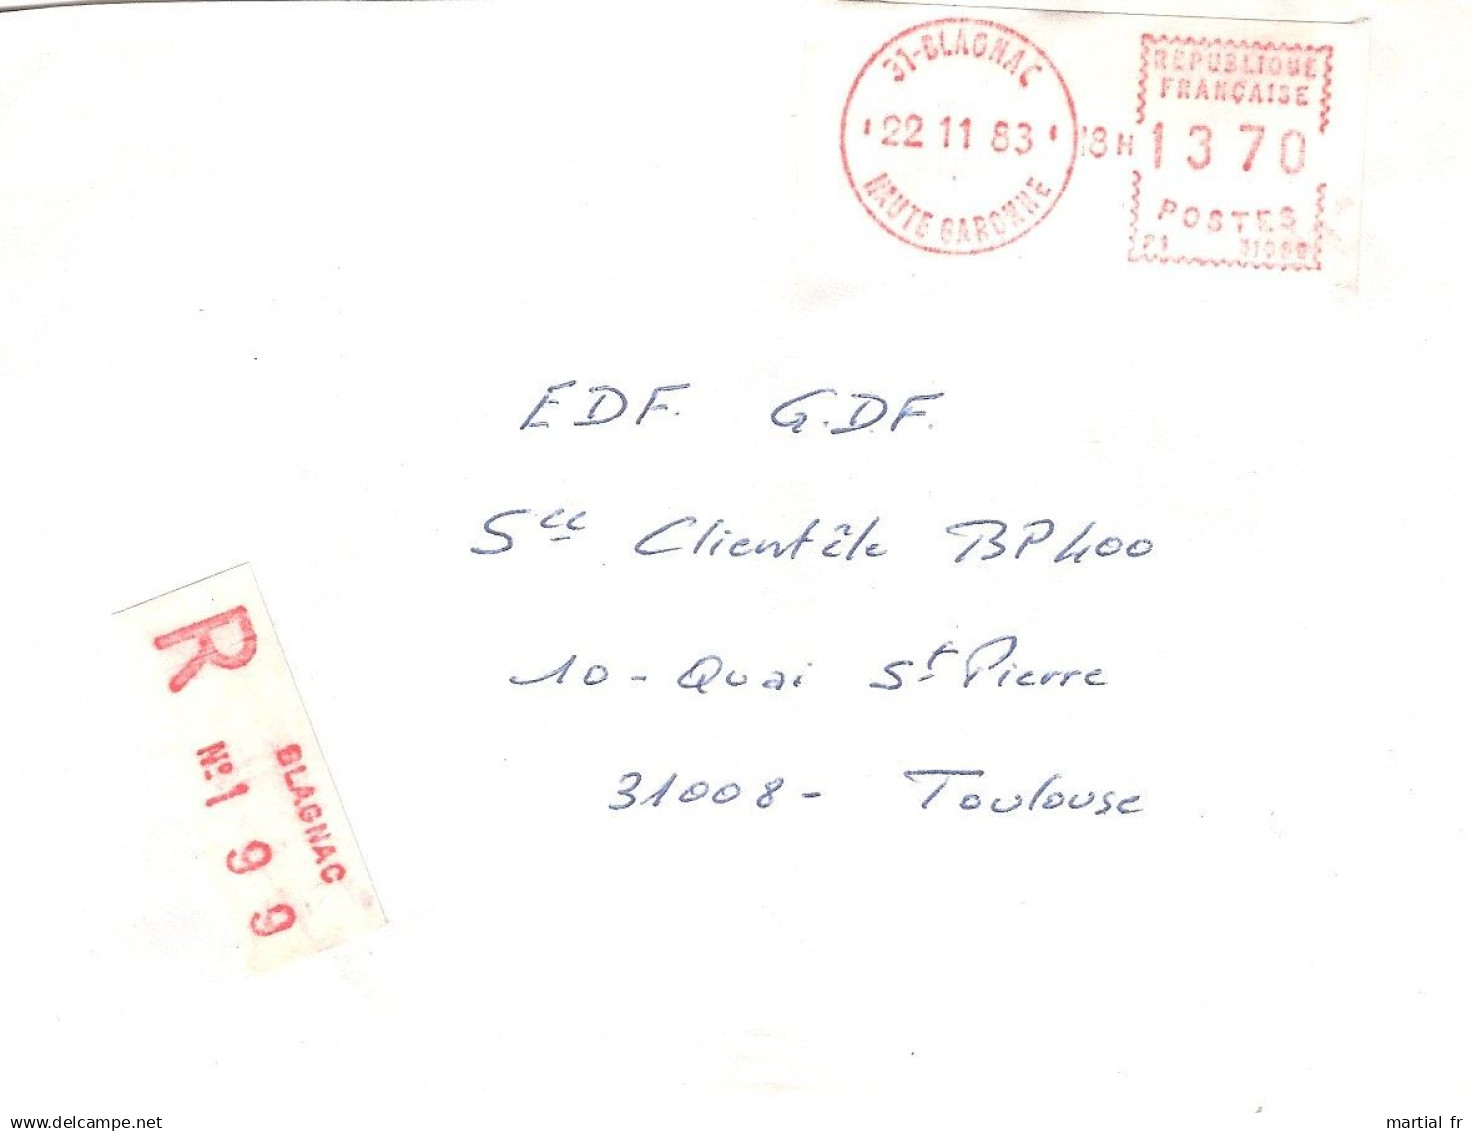 31-BLAGNAC
22 11 83
HAUTE GARONNE
18H
REPUBLIQUE
FRANÇAISE
1370
POSTES
EDF. G.D.F.
Sce Clientèle BP400
10 - Quai St Pierre
31008 - Toulouse
R
BLAGNAC
No 199
delcampe.net
martial fr